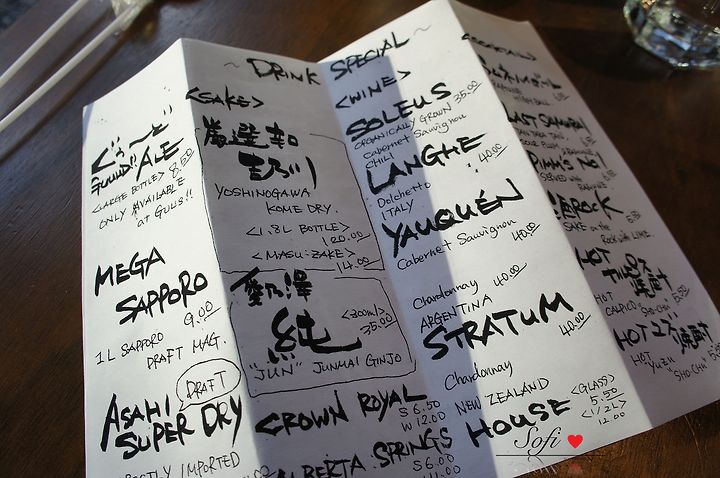 ~ DRINK SPECIAL ~
ぐぅ〜ど
GUUUD!! ALE
<LARGE BOTTLE> 8.50
ONLY AVAILABLE
at GUU8!!
MEGA
SAPPORO
9.00
1L SAPPORO
DRAFT MAG.
DRAFT
ASAHI
SUPER DRY
IMPORTED
<SAKE>
厳選辛口
吉乃川
YOSHINOGAWA
KOME DRY.
<1.8L BOTTLE>
120.00
<MASU-ZAKE>
14.00
純
<200ml>
35.00
"JUN" JUNMAI GINJO
CROWN ROYAL
S 6.50
W 12.00
ALBERTA SPRINGS
S 6.00
<WINE>
SOLEUS 35.00
ORGANICALLY GROWN
Cabernet Sauvignon
CHILI
LANGHE
40.00
Dolchetto
ITALY
YAUQUÉN
Cabernet Sauvignon
40.00
Chardonnay 40.00
ARGENTINA
STRATUM
40.00
Chardonnay
NEW ZEALAND
HOUSE
<GLASS>
5.50
<1/2L>
12.00
LAST SAMURAI
PIMM'S NO1
SERVED with
ROCK
SAKE on the
Rock with LIME
HOT
HOT
CALPICO "SHO CHU"
5.50
HOT ゆず焼酎
HOT
YUZU "SHO CHU"
5.50
Sofi